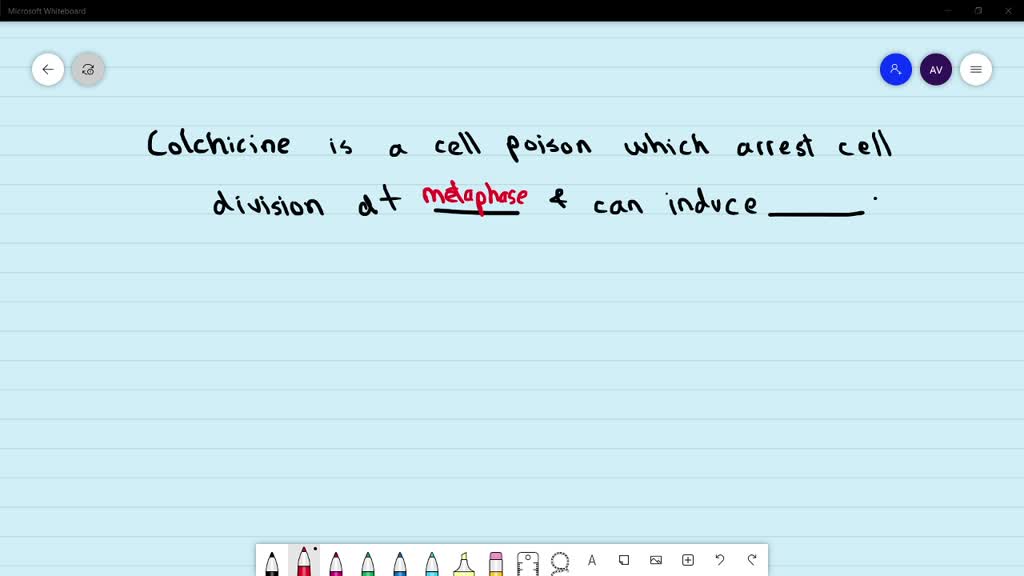 Microsoft Whiteboard
AV
Colchicine is a cell poison which arrest cell
division at metaphase & can induce ______.
A